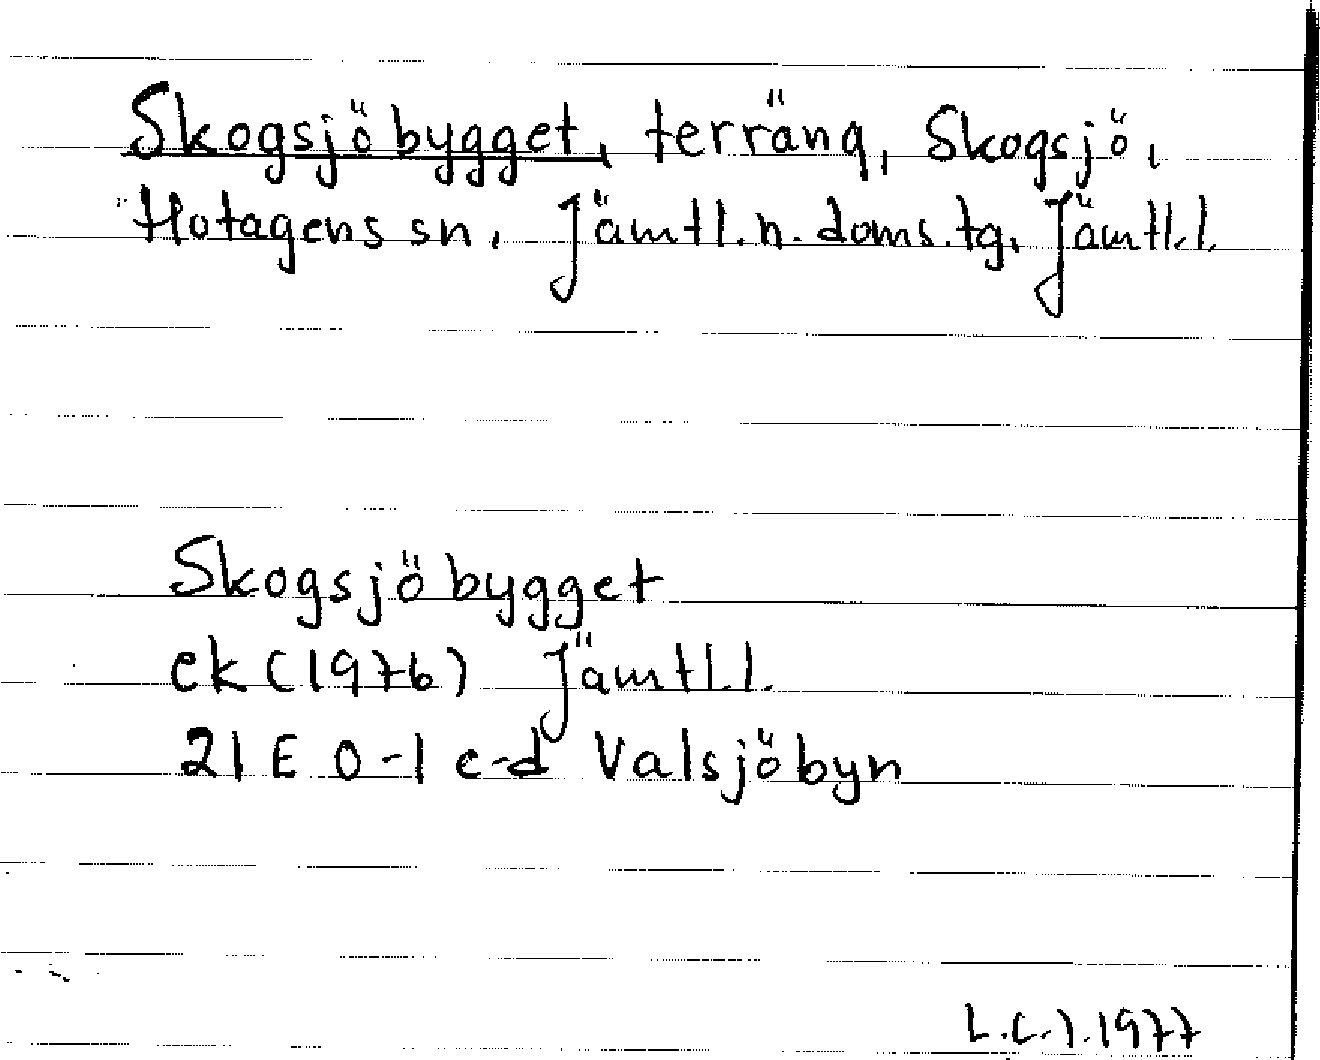 Skogsjöbygget, terräng, Skogsjö,
Hotagens sn, Jämtl. n. doms. tg. Jämtl. l.
Skogsjöbygget
ek (1976) Jämtl. l.
21 E 0-1 c-d Valsjöbyn
1977